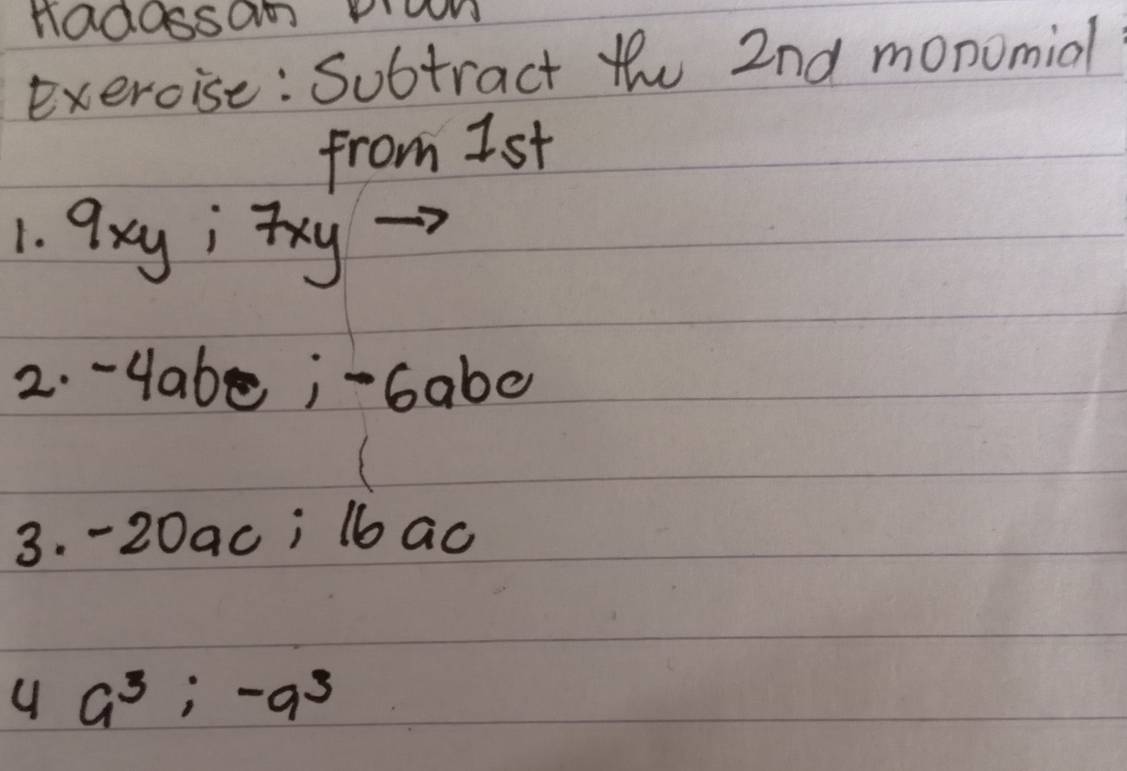 Exercise: Subtract the 2nd monomial
from 1st
1. 9xy ; 7xy →
2. -4abc ; -6abc
3. -20ac ; 16ac
4 a³ ; -a³